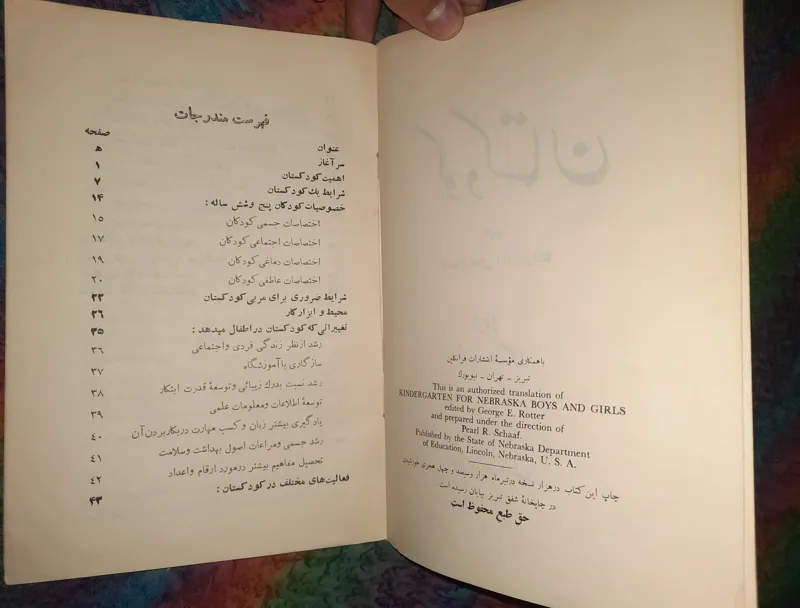 باهمکاری مؤسسهٔ انتشارات فرانکلین
تبریز ـ تهران ـ نیویورک
This is an authorized translation of
KINDERGARTEN FOR NEBRASKA BOYS AND GIRLS
edited by George E. Rotter
and prepared under the direction of
Pearl R. Schaaf.
Published by the State of Nebraska Department
of Education, Lincoln, Nebraska, U. S. A.
چاپ این کتاب در هزار نسخه در تیرماه هزار و سیصد و چهل هجری خورشیدی
در چاپخانهٔ شفق تبریز بپایان رسیده است
حق طبع محفوظ است
فهرست مندرجات
عنوان صفحه
سر آغاز ه
اهمیت کودکستان ۱
شرایط یك کودکستان ۷
خصوصیات کودکان پنج و شش ساله : ۱۴
اختصاصات جسمی کودکان ۱۵
اختصاصات اجتماعی کودکان ۱۷
اختصاصات دماغی کودکان ۱۹
اختصاصات عاطفی کودکان ۲۰
شرایط ضروری برای مربی کودکستان ۲۳
محیط و ابزار کار ۲۶
تغییراتی که کودکستان در اطفال میدهد : ۳۵
رشد از نظر زندگی فردی و اجتماعی ۳۶
سازگاری با آموزشگاه ۳۷
رشد نسبت بدرك زیبائی و توسعهٔ قدرت ابتکار ۳۸
توسعهٔ اطلاعات و معلومات علمی ۳۹
یادگیری بیشتر زبان و کسب مهارت در بکار بردن آن ۴۰
رشد جسمی و مراعات اصول بهداشت و سلامت ۴۱
تحصیل مفاهیم بیشتر در مورد ارقام و اعداد ۴۲
فعالیت‌های مختلف در کودکستان : ۴۳